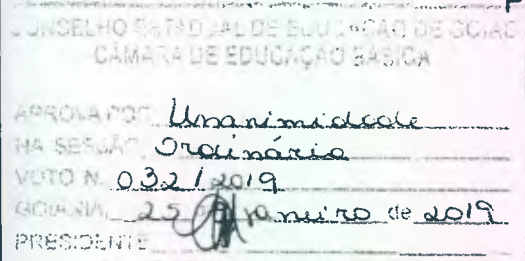 CONSELHO ESTADUAL DE EDUCAÇÃO DE GOIÁS
CÂMARA DE EDUCAÇÃO BÁSICA
APROVA POR Unanimidade
NA SESSÃO Ordinária
VOTO N. 032 / 2019
GOIÂNIA, 25 de janeiro de 2019
PRESIDENTE